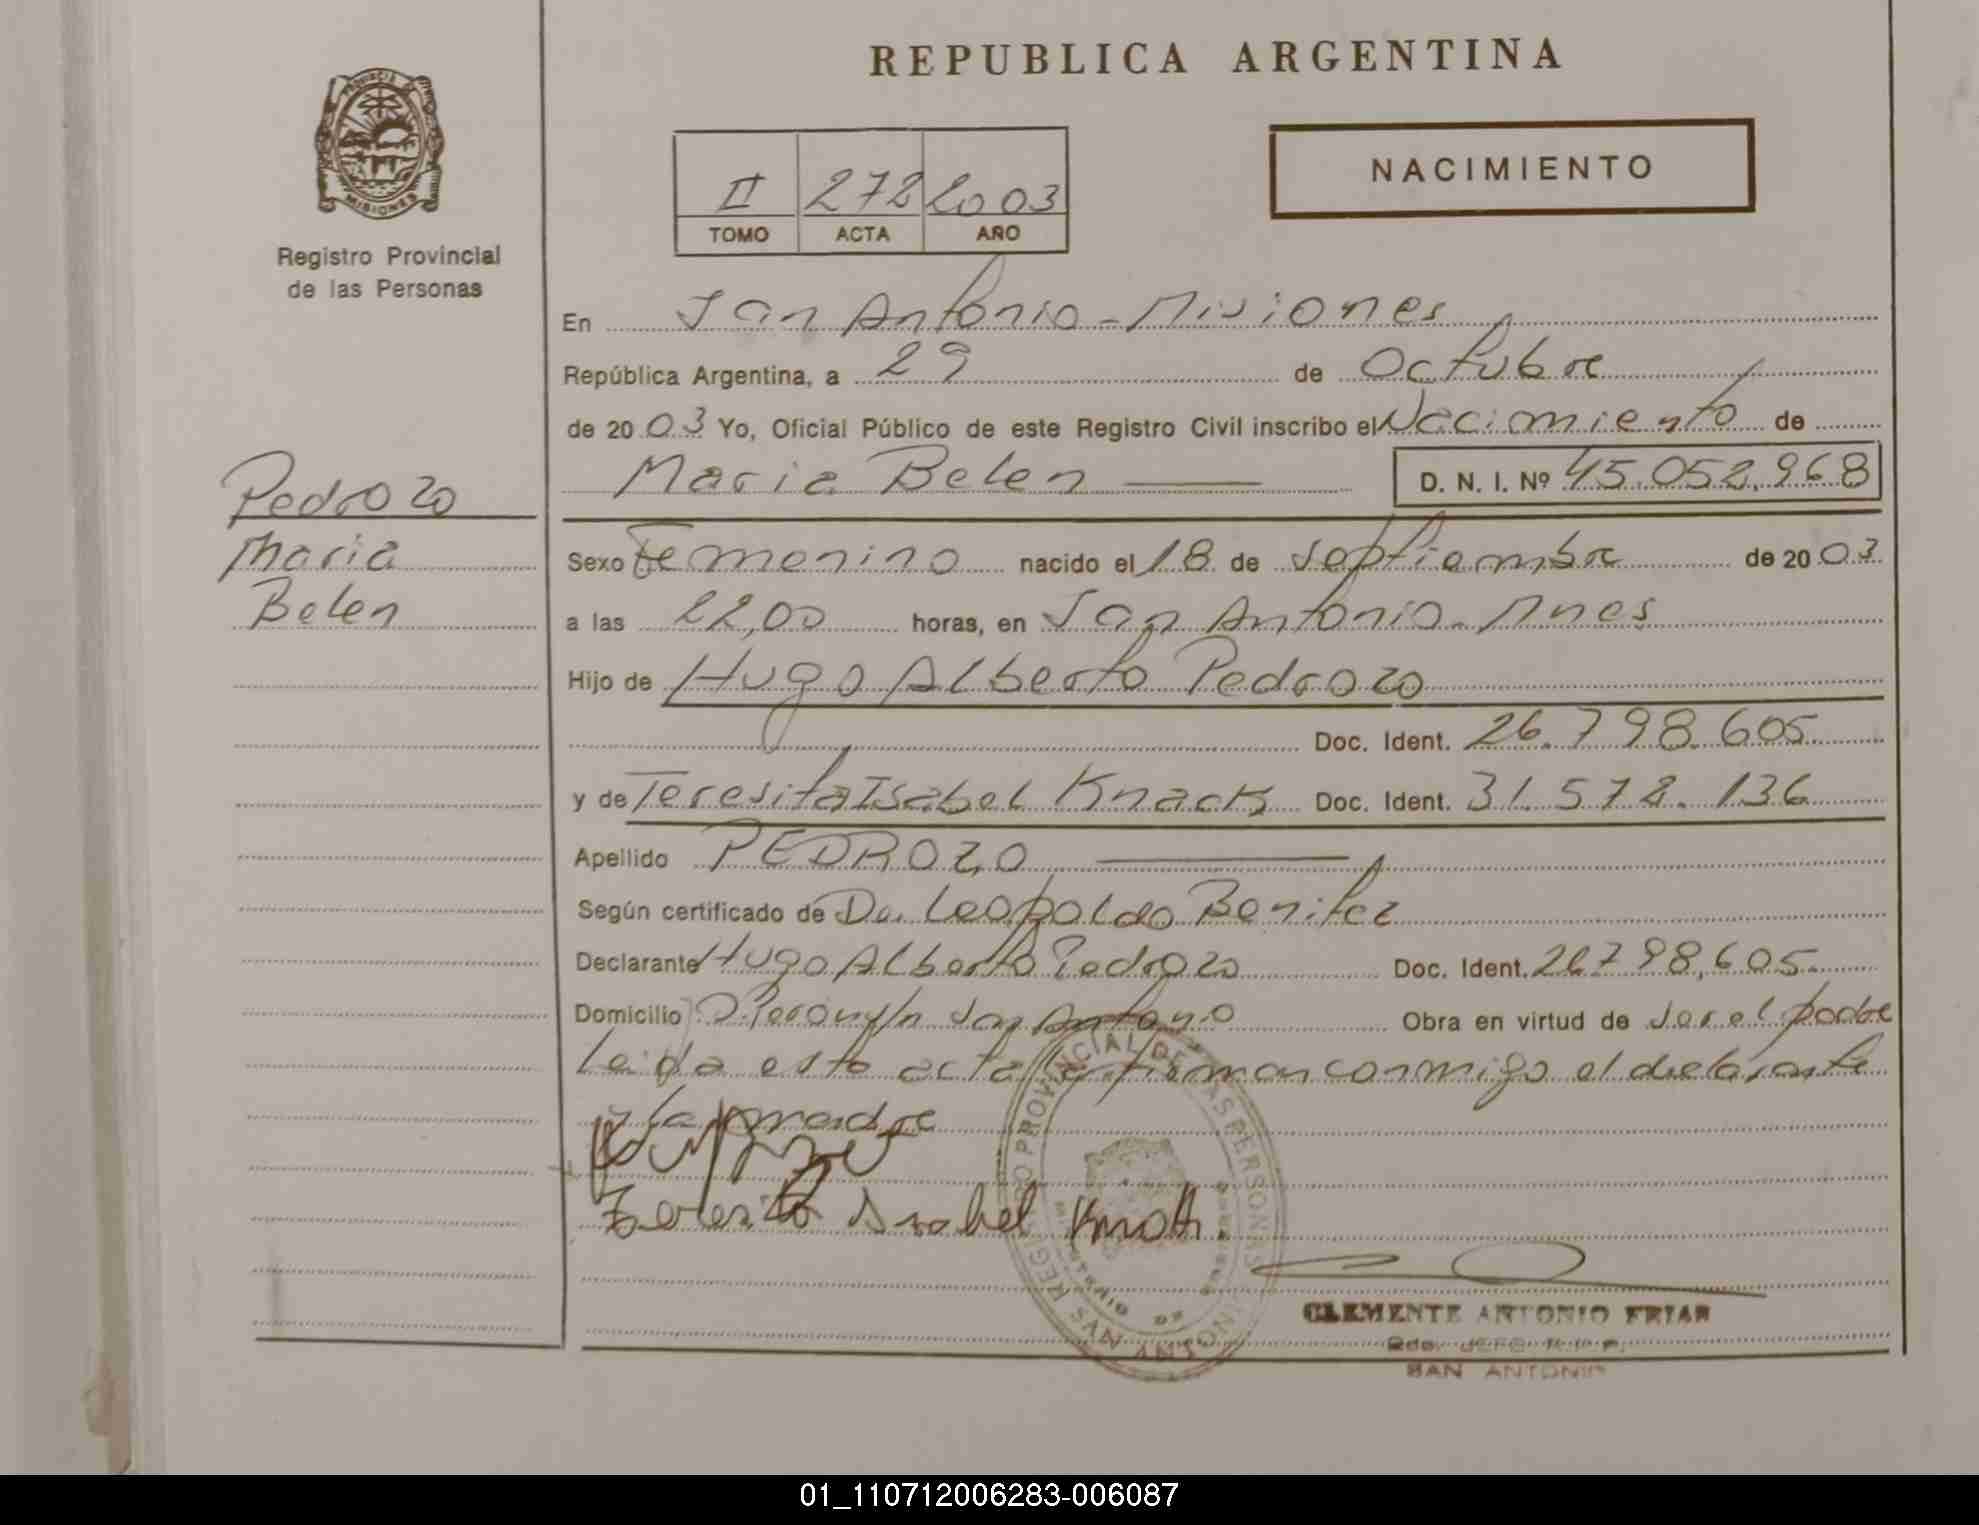 REPUBLICA ARGENTINA
PROVINCIA DE MISIONES
Registro Provincial
de las Personas
II 272 2003
TOMO ACTA AÑO
NACIMIENTO
En San Antonio - Misiones
República Argentina, a 29 de Octubre
de 20 03 Yo, Oficial Público de este Registro Civil inscribo el Nacimiento de
Maria Belen D. N. I. Nº 45.052.968
Pedrozo
Maria
Belen
Sexo Femenino nacido el 18 de Septiembre de 20 03
a las 22,00 horas, en San Antonio - Mnes
Hijo de Hugo Alberto Pedrozo
Doc. Ident. 26.798.605
y de Teresita Isabel Knack Doc. Ident. 31.578.136
Apellido PEDROZO
Según certificado de Dr. Leopoldo Benitez
Declarante Hugo Alberto Pedrozo Doc. Ident. 26798,605
Domicilio Peron s/n San Antonio Obra en virtud de ser el padre
Leida esta acta la firman conmigo el declarante
y la madre
Teresita Isabel
REGISTRO PROVINCIAL DE LAS PERSONAS
SAN ANTONIO
CLEMENTE ANTONIO FRIAR
SAN ANTONIO
01_110712006283-006087